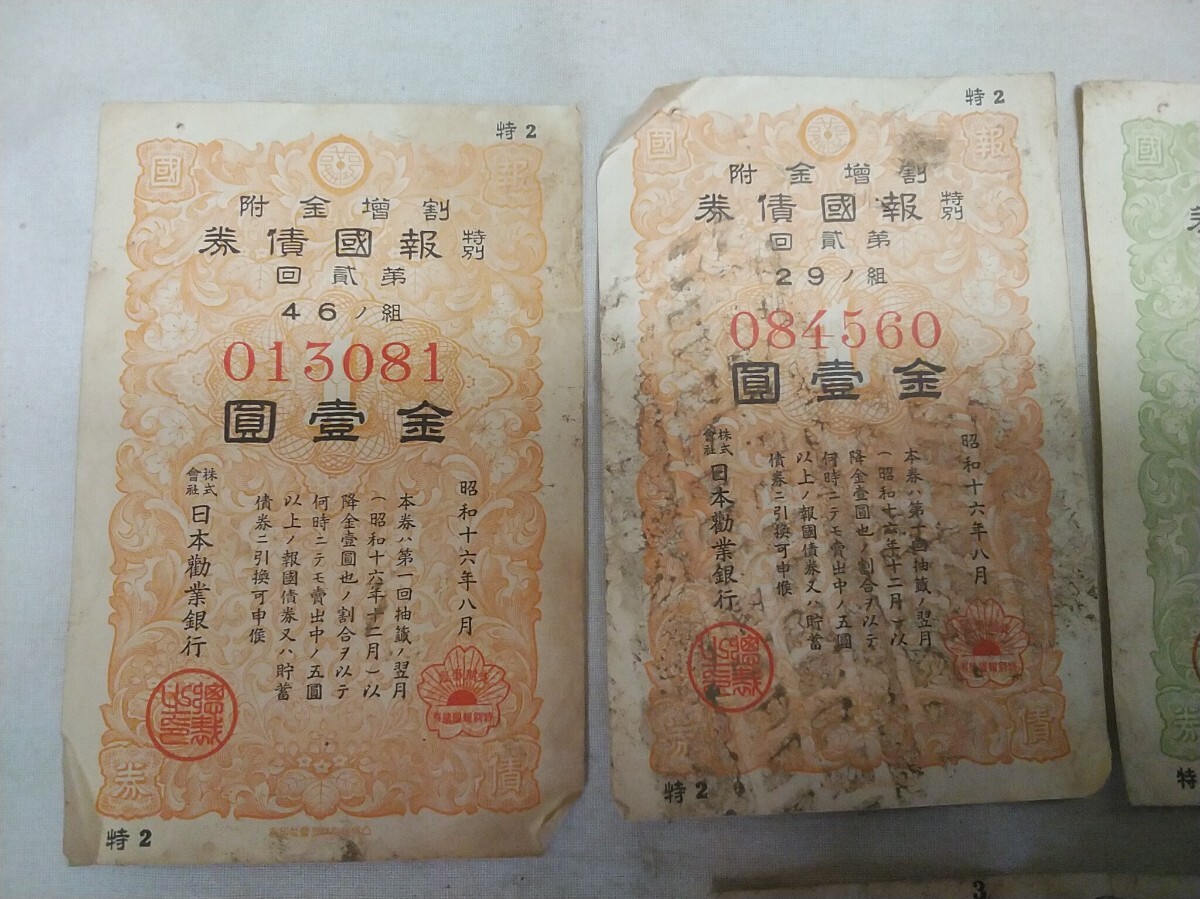 特2
國
報
割增金附
特別 報國債券
第貳回
46ノ組
013081
金壹圓
昭和十六年八月
本券ハ第一回抽籤ノ翌月
(昭和十六年十二月)以
降金壹圓也ノ割合ヲ以テ
何時ニテモ賣出中ノ五圓
以上ノ報國債券又ハ貯蓄
債券ニ引換可申候
株式會社 日本勸業銀行
總裁之印
券
債
特2
特2
國
報
割增金附
特別 報國債券
第貳回
29ノ組
084560
金壹圓
昭和十六年八月
本券ハ第一回抽籤ノ翌月
(昭和十六年十二月)以
降金壹圓也ノ割合ヲ以テ
何時ニテモ賣出中ノ五圓
以上ノ報國債券又ハ貯蓄
債券ニ引換可申候
株式會社 日本勸業銀行
總裁之印
券
債
特2
國
特
3